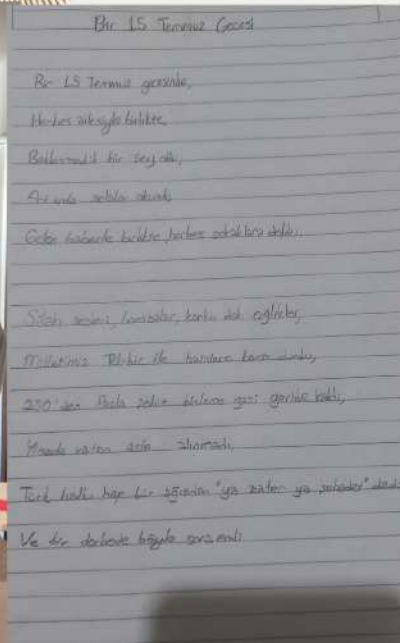 Bir 15 Temmuz Gecesi
Bir 15 Temmuz gecesinde,
Herkes ailesiyle birlikte,
Beklenmedik bir şey oldu,
selalar okundu,
Gelen haberle birlikte, herkes sokaklara doldu.
Silah sesleri, korku dolu çığlıklar,
Milletimiz Tekbir ile hainlere karşı durdu,
250'den fazla şehit binlerce gazi geride kaldı,
vatan
Türk halkı hep bir ağızdan "ya zafer ya şehadet" dedi
Ve bir darbede böyle sona erdi